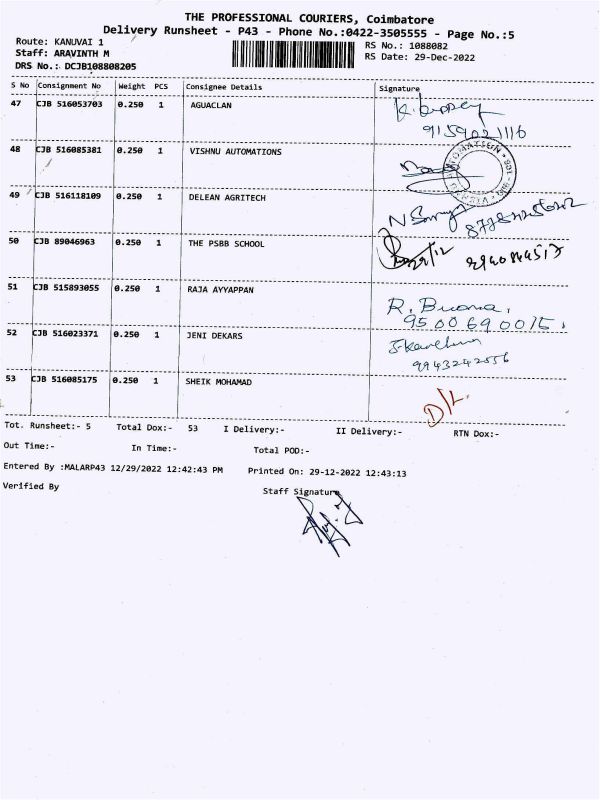 THE PROFESSIONAL COURIERS, Coimbatore
Delivery Runsheet - P43 - Phone No.:0422-3505555 - Page No.:5
Route: KANUVAI 1
RS No.: 1088082
Staff: ARAVINTH M
RS Date: 29-Dec-2022
DRS No.: DCJB108808205
S No Consignment No Weight PCS Consignee Details Signature
47 CJB 516053703 0.250 1 AGUACLAN
9159021116
48 CJB 516085381 0.250 1 VISHNU AUTOMATIONS
49 CJB 516118109 0.250 1 DELEAN AGRITECH
50 CJB 89046963 0.250 1 THE PSBB SCHOOL
51 CJB 515893055 0.250 1 RAJA AYYAPPAN
R. Buvana.
9500690015.
52 CJB 516023371 0.250 1 JENI DEKARS
9943242556
53 CJB 516085175 0.250 1 SHEIK MOHAMAD
D/L.
Tot. Runsheet:- 5 Total Dox:- 53 I Delivery:- II Delivery:- RTN Dox:-
Out Time:- In Time:- Total POD:-
Entered By :MALARP43 12/29/2022 12:42:43 PM Printed On: 29-12-2022 12:43:13
Verified By
Staff Signature